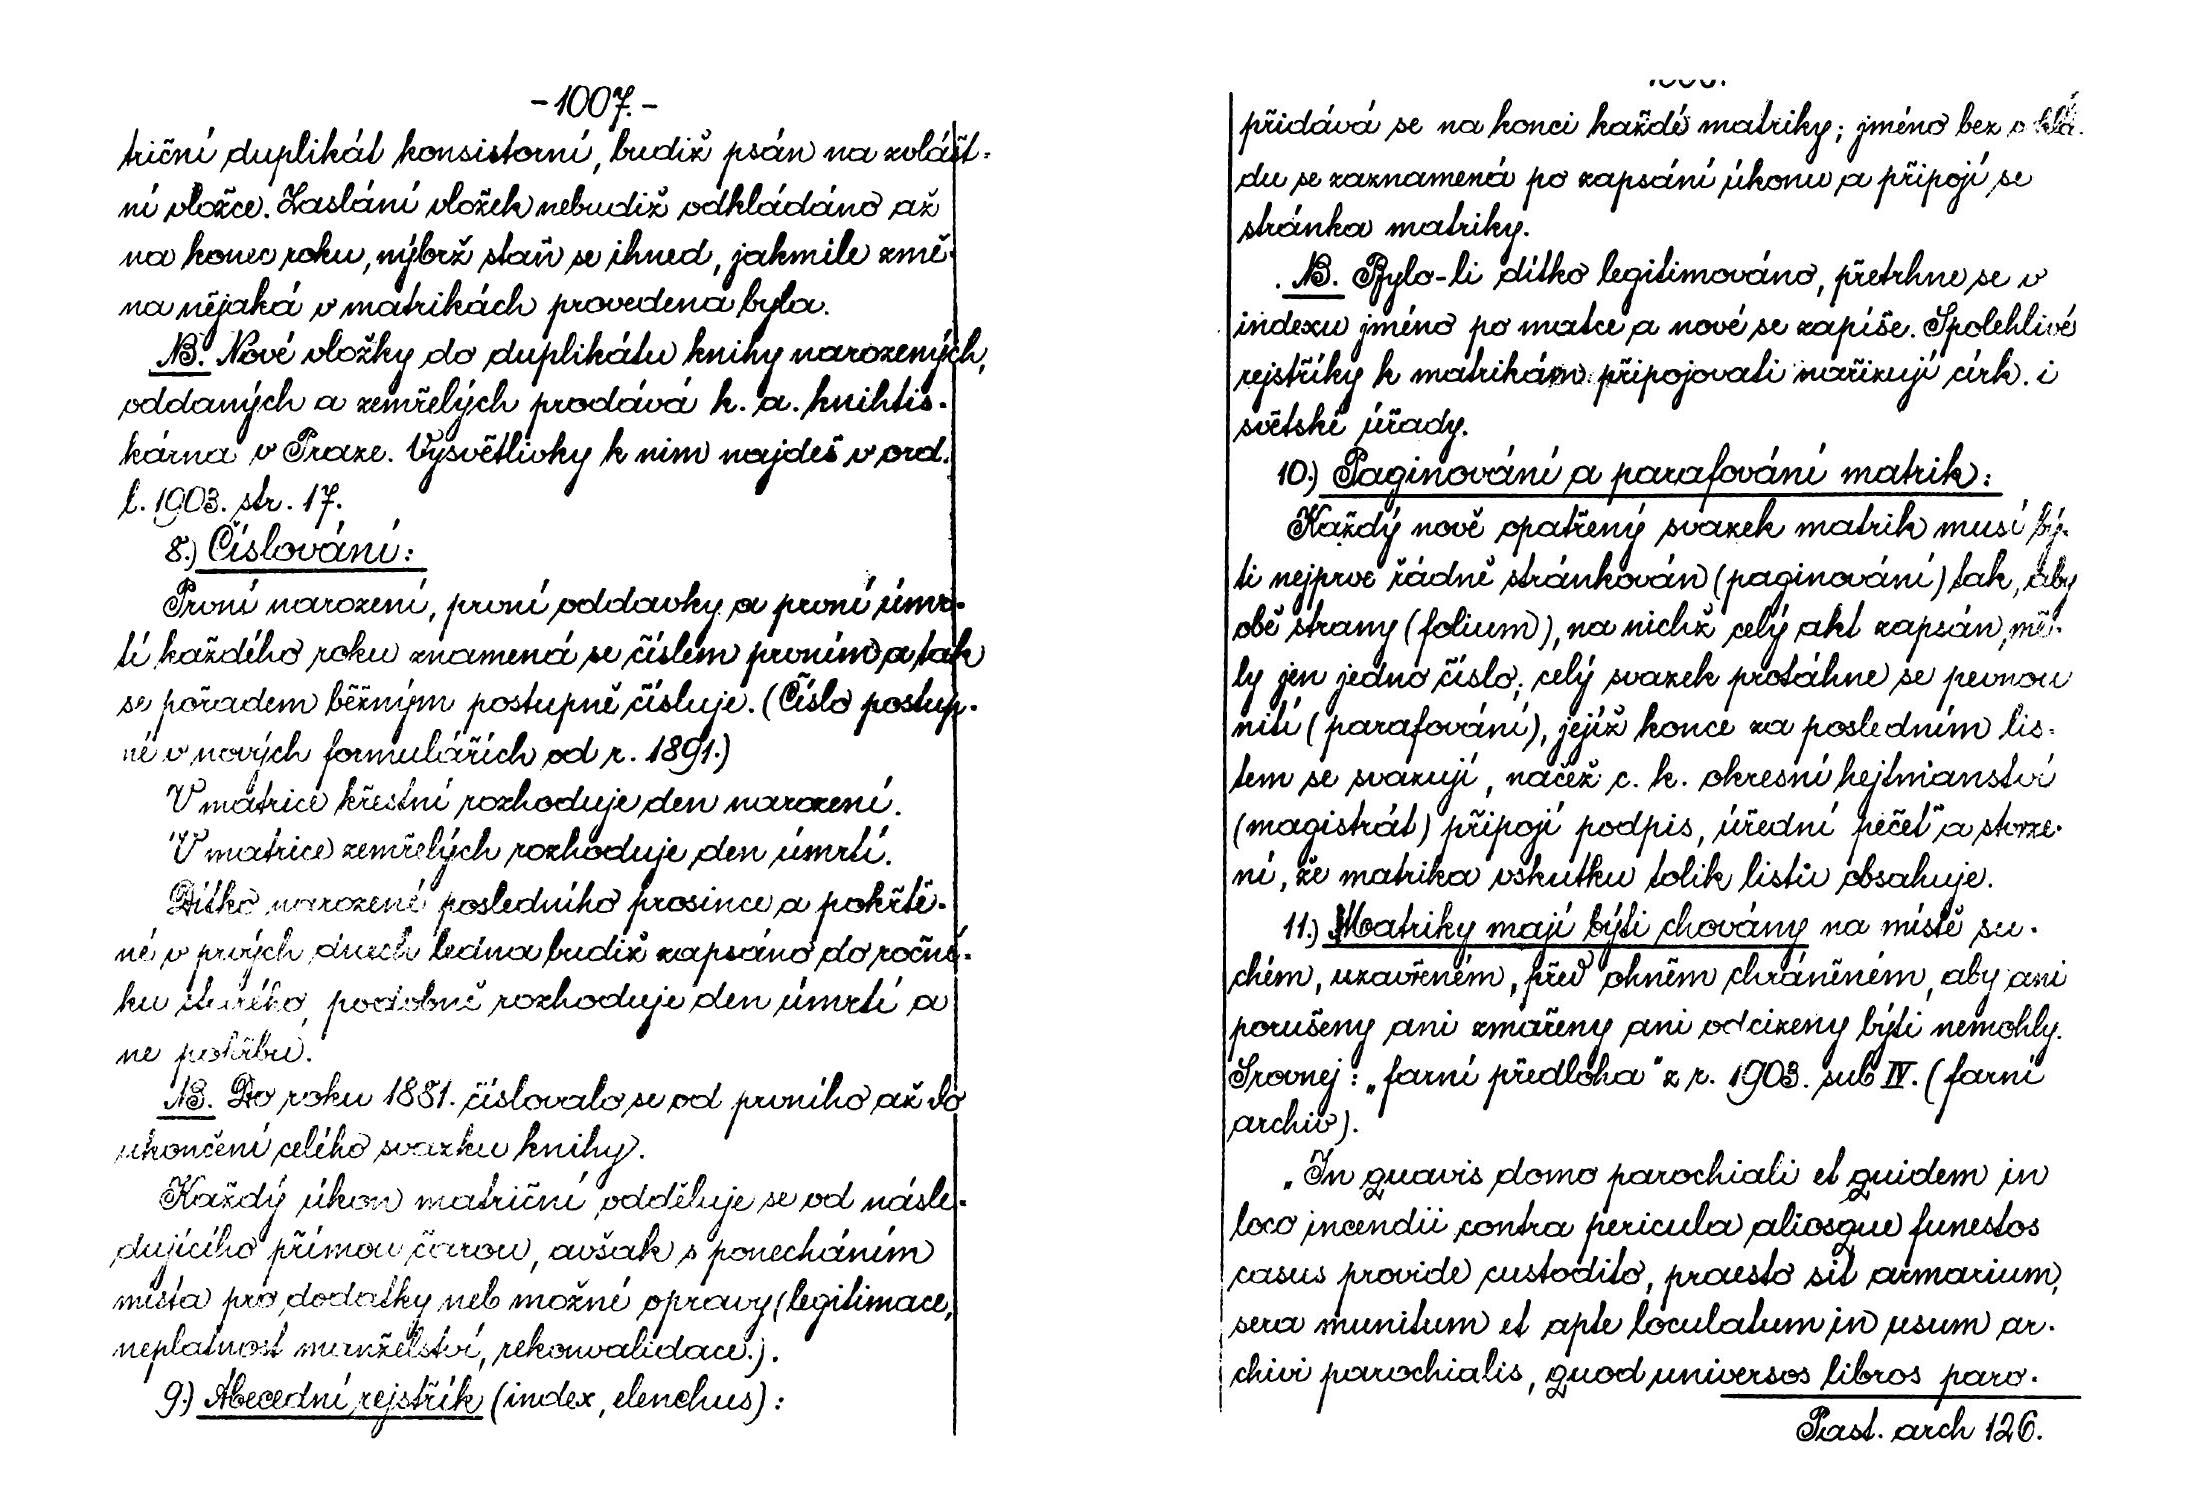 -1007.-
triční duplikát konsistorní, budiž psán na zvlášt-
ní vložce. Zaslání vložek nebudiž odkládáno až
na konec roku, nýbrž staň se ihned, jakmile změ-
na nějaká v matrikách provedena byla.
NB. Nové vložky do duplikátu knihy narozených,
oddaných a zemřelých prodává k. a. knihtis-
kárna v Praze. Vysvětlivky k nim najdeš v ord.
l. 1903. str. 17.
8.) Číslování:
První narození, první oddavky a první úmr-
tí každého roku znamená se číslem prvním a tak
se pořadem běžným postupně čísluje. (Číslo postup-
né v nových formulářích od r. 1891.)
V matrice křestní rozhoduje den narození.
V matrice zemřelých rozhoduje den úmrtí.
Dítko narozené posledního prosince a pokřtě-
né v prvých dnech ledna budiž zapsáno do roční-
ku starého, podobně rozhoduje den úmrtí a
ne pohřbu.
NB. Do roku 1881. číslovalo se od prvního až do
ukončení celého svazku knihy.
Každý úkon matriční odděluje se od násle-
dujícího přímou čarou, avšak s ponecháním
místa pro dodatky neb možné opravy (legitimace,
neplatnost manželství, rekonvalidace.).
9.) Abecední rejstřík (index, elenchus):
přidává se na konci každé matriky; jméno bez okla-
du se zaznamená po zapsání úkonu a připojí se
stránka matriky.
NB. Bylo-li dítko legitimováno, přetrhne se v
indexu jméno po matce a nové se zapíše. Spolehlivé
rejstříky k matrikám připojovati nařizují círk. i
světské úřady.
10.) Paginování a parafování matrik:
Každý nově opatřený svazek matrik musí bý-
ti nejprve řádně stránkován (paginování) tak, aby
obě strany (folium), na nichž celý akt zapsán, mě-
ly jen jedno číslo; celý svazek protáhne se pevnou
nití (parafování), jejíž konce za posledním lis-
tem se svazují, načež c. k. okresní hejtmanství
(magistrát) připojí podpis, úřední pečeť a stvrze-
ní, že matrika vskutku tolik listů obsahuje.
11.) Matriky mají býti chovány na místě su-
chém, uzavřeném, před ohněm chráněném, aby ani
porušeny ani zmařeny ani odcizeny býti nemohly.
Srovnej: „farní předloha" z r. 1903. sub IV. (farní
archiv).
„In quavis domo parochiali et quidem in
loco incendii contra pericula aliosque funestos
casus provide custodito, praesto sit armarium,
sera munitum et apte loculatum in usum ar-
chivi parochialis, quod universos libros paro-
Past. arch 126.